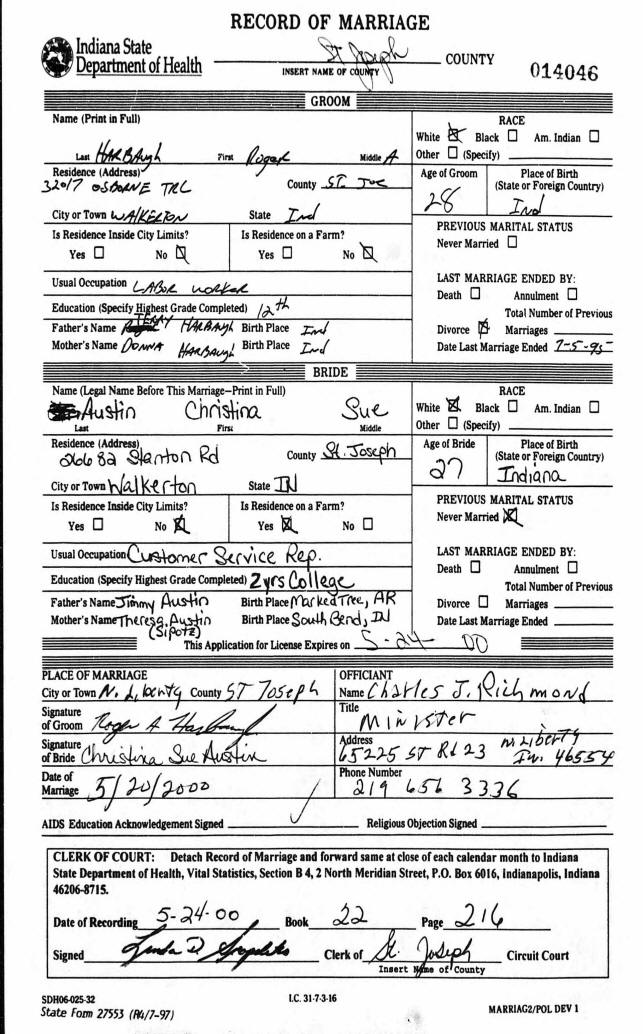 RECORD OF MARRIAGE
Indiana State
Department of Health
St Joseph COUNTY
INSERT NAME OF COUNTY
014046
GROOM
Name (Print in Full)
Last HARBAUgh First Roger Middle A
RACE
White ☒ Black ☐ Am. Indian ☐
Other ☐ (Specify)
Residence (Address)
32017 OSBORNE TRL County ST. Joe
Age of Groom
28
Place of Birth
(State or Foreign Country)
Ind
City or Town WALKERTON State Ind
Is Residence Inside City Limits?
Yes ☐ No ☒
Is Residence on a Farm?
Yes ☐ No ☒
PREVIOUS MARITAL STATUS
Never Married ☐
Usual Occupation LABOR worker
Education (Specify Highest Grade Completed) 12th
Father's Name TERRY HARBAUgh Birth Place Ind
Mother's Name DONNA HARBAUgh Birth Place Ind
LAST MARRIAGE ENDED BY:
Death ☐ Annulment ☐
Total Number of Previous
Divorce ☒ Marriages
Date Last Marriage Ended 7-5-95
BRIDE
Name (Legal Name Before This Marriage–Print in Full)
Austin Christina Sue
Last First Middle
RACE
White ☒ Black ☐ Am. Indian ☐
Other ☐ (Specify)
Residence (Address)
26682 Stanton Rd County St. Joseph
Age of Bride
27
Place of Birth
(State or Foreign Country)
Indiana
City or Town Walkerton State IN
Is Residence Inside City Limits?
Yes ☐ No ☒
Is Residence on a Farm?
Yes ☒ No ☐
PREVIOUS MARITAL STATUS
Never Married ☒
Usual Occupation Customer Service Rep.
Education (Specify Highest Grade Completed) 2yrs College
Father's Name Jimmy Austin Birth Place Marked Tree, AR
Mother's Name Theresa Austin Birth Place South Bend, IN
(Sipotz)
LAST MARRIAGE ENDED BY:
Death ☐ Annulment ☐
Total Number of Previous
Divorce ☐ Marriages
Date Last Marriage Ended
This Application for License Expires on 5-24-00
PLACE OF MARRIAGE
City or Town N. Liberty County ST Joseph
Signature
of Groom Roger A Harbaugh
Signature
of Bride Christina Sue Austin
Date of
Marriage 5/20/2000
OFFICIANT
Name Charles J. Richmond
Title
Minister
Address
65225 ST Rd 23 N Liberty
In. 46554
Phone Number
219 656 3336
AIDS Education Acknowledgement Signed
Religious Objection Signed
CLERK OF COURT: Detach Record of Marriage and forward same at close of each calendar month to Indiana
State Department of Health, Vital Statistics, Section B 4, 2 North Meridian Street, P.O. Box 6016, Indianapolis, Indiana
46206-8715.
Date of Recording 5-24-00 Book 22 Page 216
Signed Clerk of St. Joseph Circuit Court
Insert Name of County
SDH06-025-32
State Form 27553 (R4/7-97)
I.C. 31-7-3-16
MARRIAG2/POL DEV 1